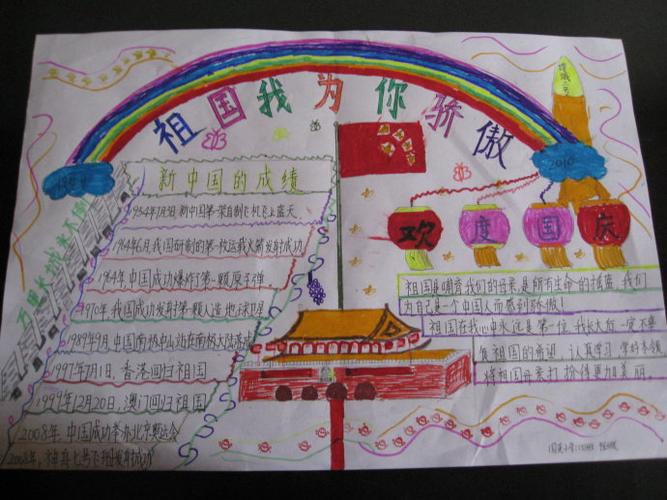 祖国我为你骄傲
1949
2010
嫦娥二号
万里长城永不倒
新中国的成绩
1954年7月3日新中国第一架自制飞机飞上蓝天
1964年6月我国研制的第一枚运载火箭发射成功
1964年中国成功爆炸了第一颗原子弹
1970年我国成功发射第一颗人造地球卫星
1989年9月中国南极中山站在南极大陆落成
1997年7月1日,香港回归祖国
1999年12月20日,澳门回归祖国
2008年,中国成功举办北京奥运会
2008年,神舟七号飞船发射成功
欢度国庆
祖国是哺育我们的母亲,是所有生命的摇篮,我们
为自己是一个中国人而感到骄傲!
祖国在我心中永远是第一位,我长大后一定不辜
负祖国的希望,认真学习,学好本领
将祖国母亲打扮得更加美丽